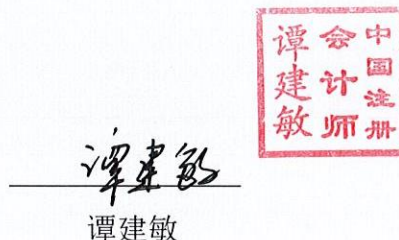 中国注册
会计师
谭建敏
谭建敏
谭建敏